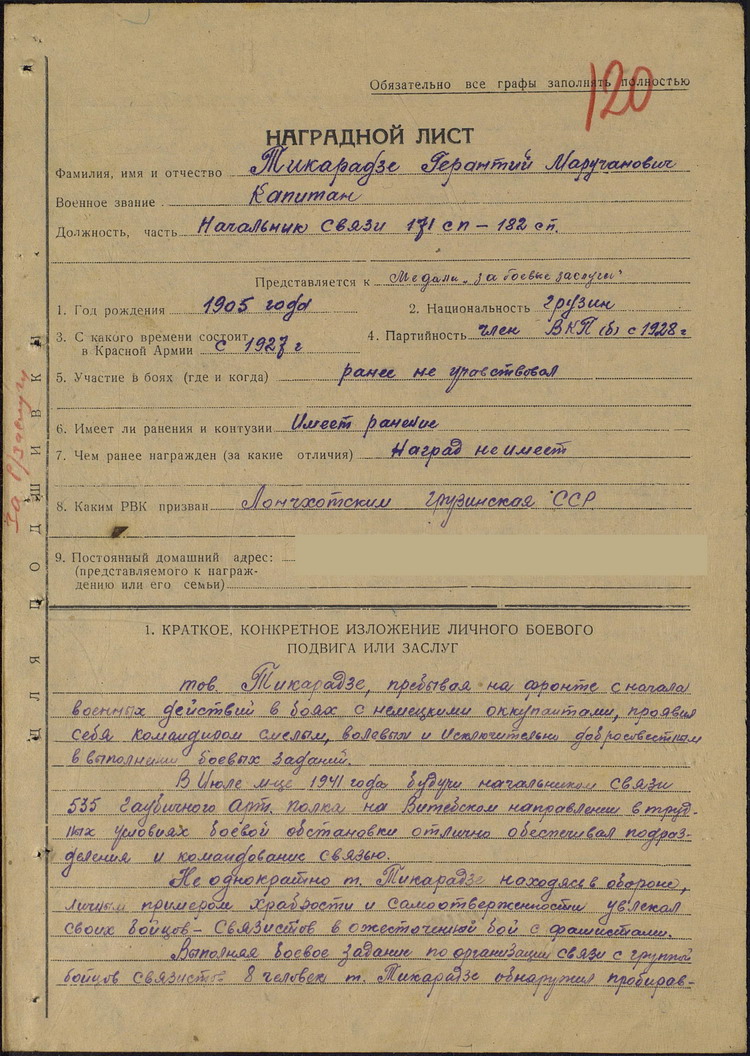 Обязательно все графы заполнять полностью
120
НАГРАДНОЙ ЛИСТ
Фамилия, имя и отчество Тикарадзе Герантий Маручанович
Военное звание Капитан
Должность, часть Начальник связи 171 сп – 182 сп.
Представляется к Медали „за боевые заслуги"
1. Год рождения 1905 года 2. Национальность грузин
3. С какого времени состоит
в Красной Армии с 1927 г 4. Партийность член ВКП(б) с 1928 г
5. Участие в боях (где и когда) ранее не
6. Имеет ли ранения и контузии Имеет ранение
7. Чем ранее награжден (за какие отличия) Наград не имеет
8. Каким РВК призван Грузинская ССР
9. Постоянный домашний адрес:
(представляемого к награж-
дению или его семьи)
ДЛЯ ПОДШИВКИ
За б/заслуги
1. КРАТКОЕ, КОНКРЕТНОЕ ИЗЛОЖЕНИЕ ЛИЧНОГО БОЕВОГО
ПОДВИГА ИЛИ ЗАСЛУГ
тов. Тикарадзе, пребывая на фронте с начала
военных действий в боях с немецкими оккупантами, проявил
себя командиром смелым, волевым и исключительно добросовестным
в выполнении боевых заданий.
В Июле м-це 1941 года будучи начальником связи
535 гаубичного арт. полка на Витебском направлении в труд-
ных условиях боевой обстановки отлично обеспечивал подраз-
деления и командование связью.
Не однократно т. Тикарадзе находясь в обороне,
личным примером храбрости и самоотверженности увлекал
своих бойцов – Связистов в ожесточенный бой с фашистами.
Выполняя боевое задание по организации связи с группой
бойцов связистов 8 человек т. Тикарадзе обнаружил пробирав-